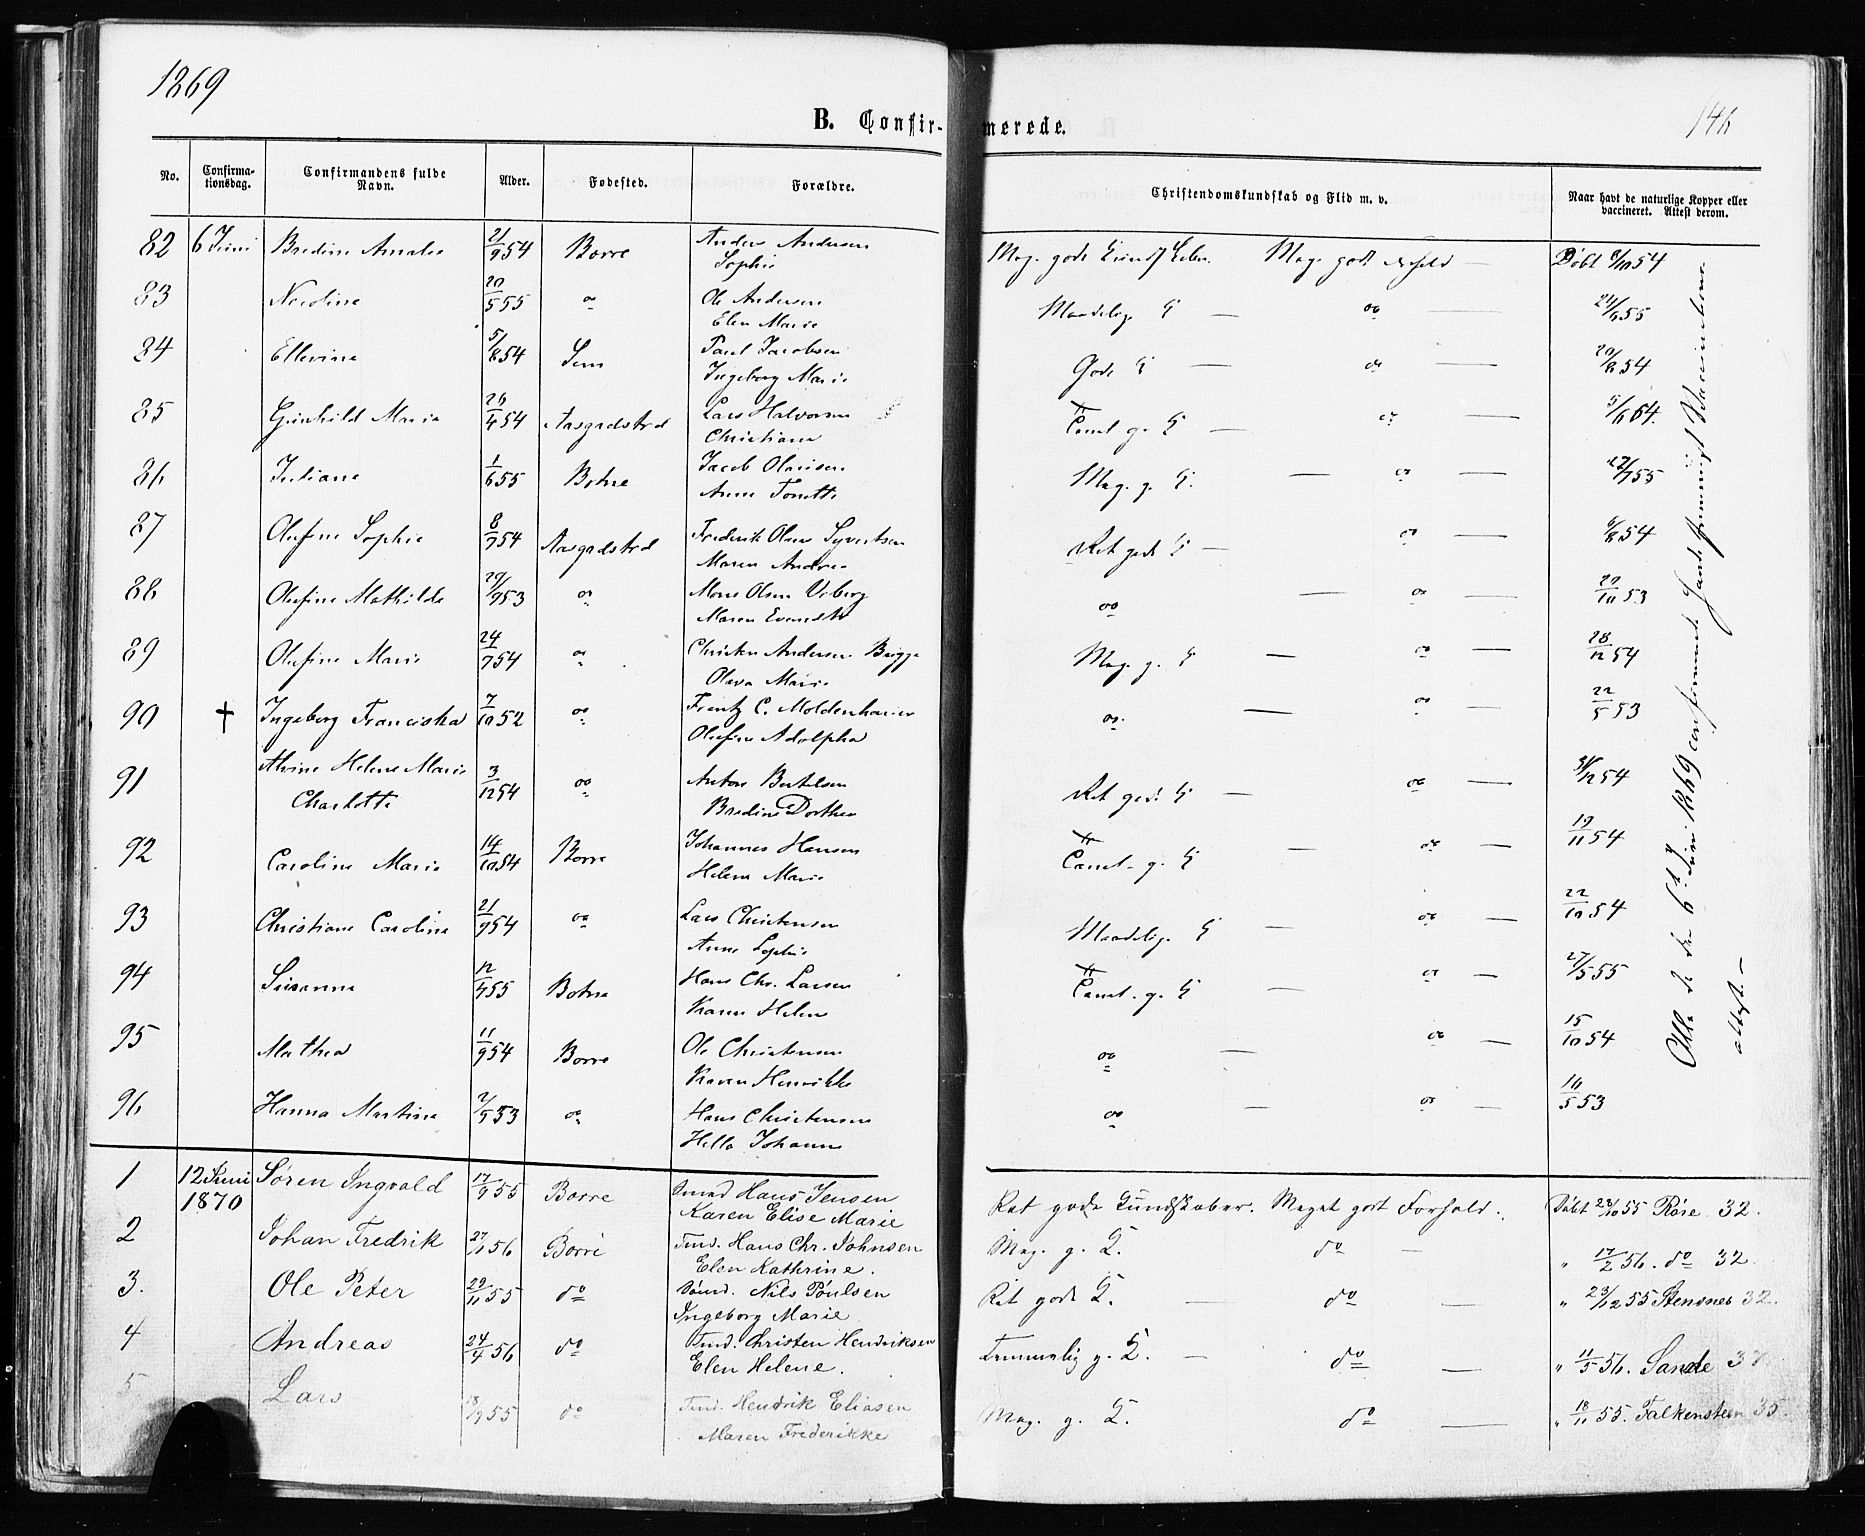 1869
146
B. Confirmerede.
No. Confirmationsdag. Confirmandens fulde Navn. Alder. Fødested. Forældre. Christendomskundskab og Flid m. v. Naar havt de naturlige Kopper eller vaccineret. Attest derom.
82 6 Juni Bredine Amalie 21/9 54 Borre Anders Andersen Meg. gode Meg. godt Døbt 54
Sophie
83 Nicoline 20/5 55 do Ole Andersen Maadelige do 24/6 55
Elen Marie
84 Ellevine 5/8 54 Sem Paul Jacobsen Gode do 20/8 54
Ingeborg Marie
85 Gunhild Marie 26/4 54 Aasgadstrd Lars Halvorsen Teml. g. do 5/6 64.
Christiane
86 Juliane 1/6 55 Botne Jacob Olavisen Meg. g. do 22/7 55
Anne Tonette
87 Olefine Sophie 8/7 54 Aasgadstrd Frederik Olsen Syvertsen Ret gode do 6/8 54
Maren Andrea
88 Olefine Mathilde 29/9 53 do Mons Olsen Viberg do do 20/10 53
Maren
89 Olefine Marie 24/7 54 do Christen Andersen Brigge Meg. g. do 28/12 54
Olava Marie
90 † Ingeborg Franciska 7/10 52 do Frantz C. Moldenhauer do do 22/5 53
Olefine Adolpha
91 Alvine Helene Marie 3/12 54 do Anton Bertelsen Ret gode do 31/12 54
Charlotte Bredine Dorthea
92 Caroline Marie 14/10 54 Borre Johannes Hansen Teml. g. do 19/11 54
Helene Marie
93 Christiane Caroline 21/9 54 do Lars Christensen Maadelige do 22/10 54
Anne Sophie
94 Susanne 12/4 55 Botne Hans Chr. Larsen Teml. g. do 27/5 55
Karen Helene
95 Mathea 11/9 54 Borre Ole Christensen do do 15/10 54
Karen Henrikke
96 Hanna Martine 53 do Hans Christensen do do 16/5 53
Helle Johanne
Alle de den 6te Juni 1869 confirmerede havde Vaccinations
attest.
1 12 Juni Søren Ingvald 17/9 55 Borre Hans Jensen Ret gode Kundskaber. Meget godt Forhold. Døbt 28/10 55 Røre 32.
1870 Karen Elise Marie
2 Johan Fredrik 27/1 56 Borre Hans Chr. Johnsen Meg. g. K. do " 17/2 56. do 32
Elen Kathrine.
3. Ole Peter 29/11 55 do Nils Poulsen Ret gode K. do " 23/12 55 Stensnes 32.
Ingeborg Marie
4 Andreas 24/4 56 do Christen Hendriksen Temmelig g. K. do " 11/5 56. Sande
Elen Helene.
5 Lars 18/9 55 do Hendrik Eliasen Meg. g. K. do " 18/11 55. Falkensten 35.
Maren Frederikke